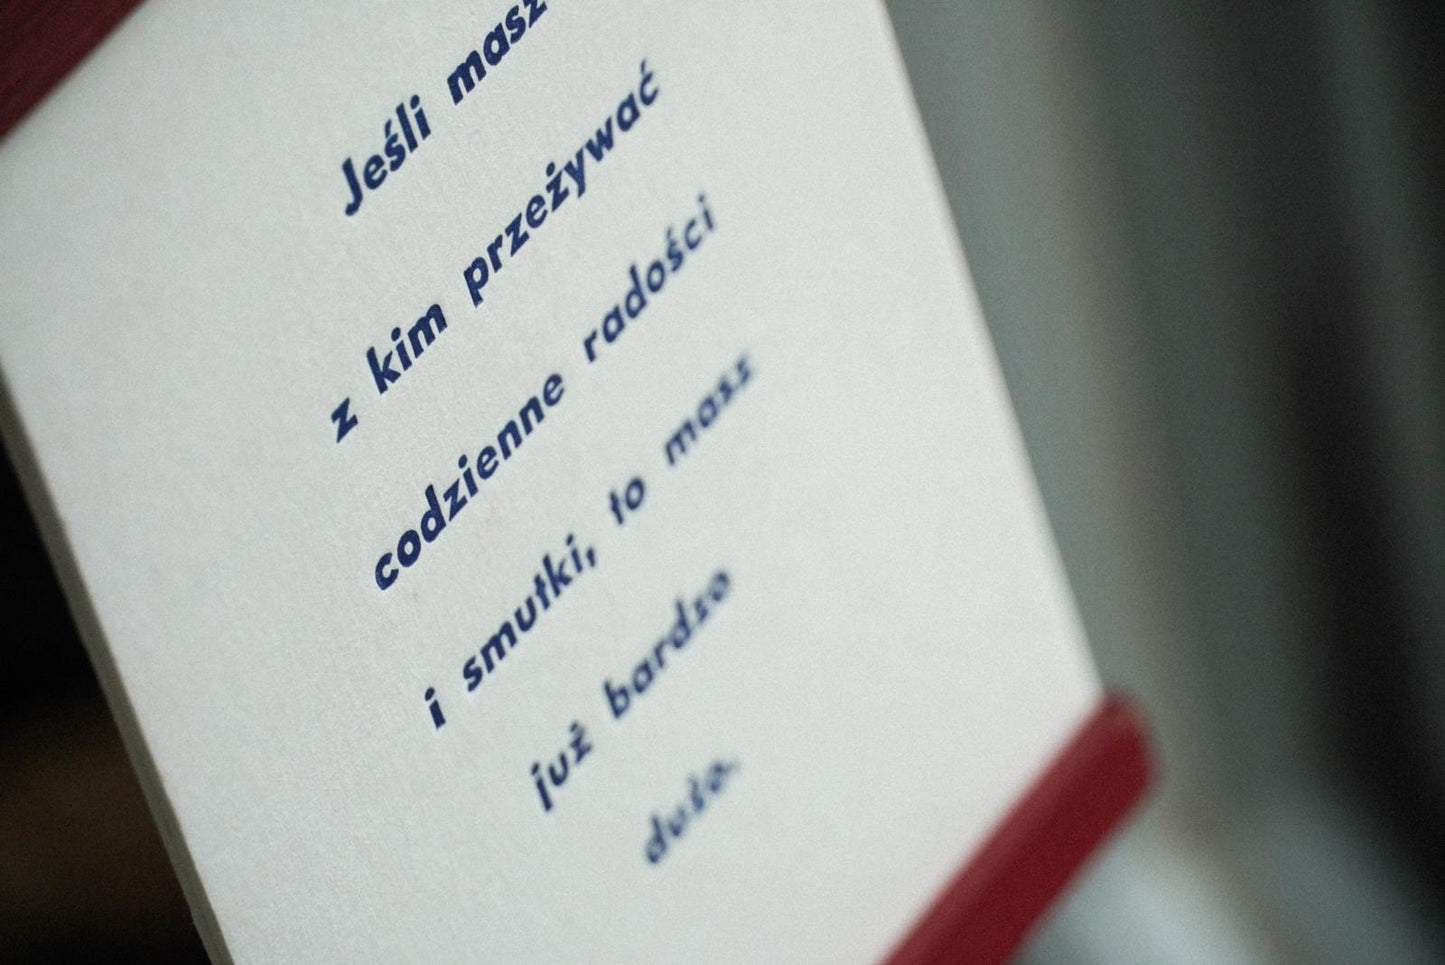 Jeśli masz
z kim przeżywać
codzienne radości
i smutki, to masz
już bardzo
dużo.